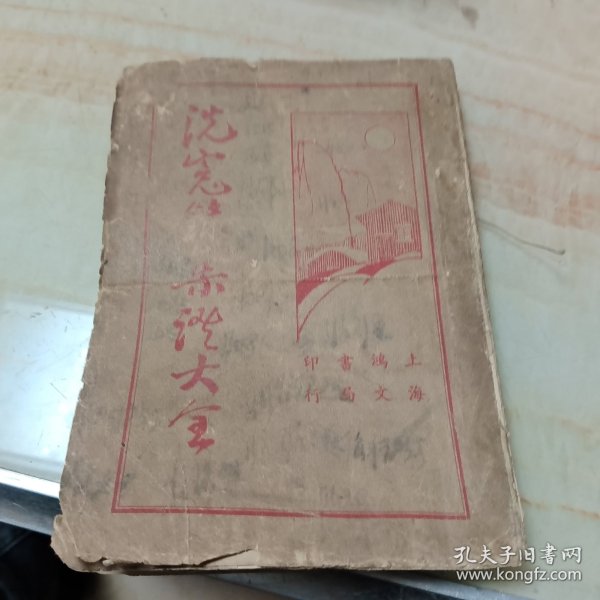 洗冤 集證大全
上海
鴻文
書局
印行
孔夫子旧书网
www.kongfz.com